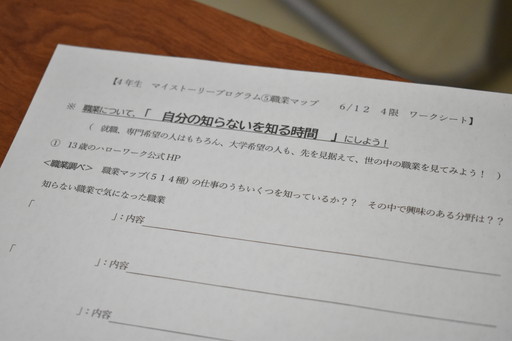 【4年生　マイストーリープログラム⑤職業マップ　　6/12　4限　ワークシート】
※　職業について、「　自分の知らないを知る時間　」にしよう！
（　就職、専門希望の人はもちろん、大学希望の人も、先を見据えて、世の中の職業を見てみよう！　）
①　13歳のハローワーク公式HP
＜職業調べ＞　職業マップ(514種)の仕事のうちいくつを知っているか？？　その中で興味のある分野は？？
知らない職業で気になった職業
「　　　　　　　　」：内容
「　　　　　　　　」：内容
」：内容